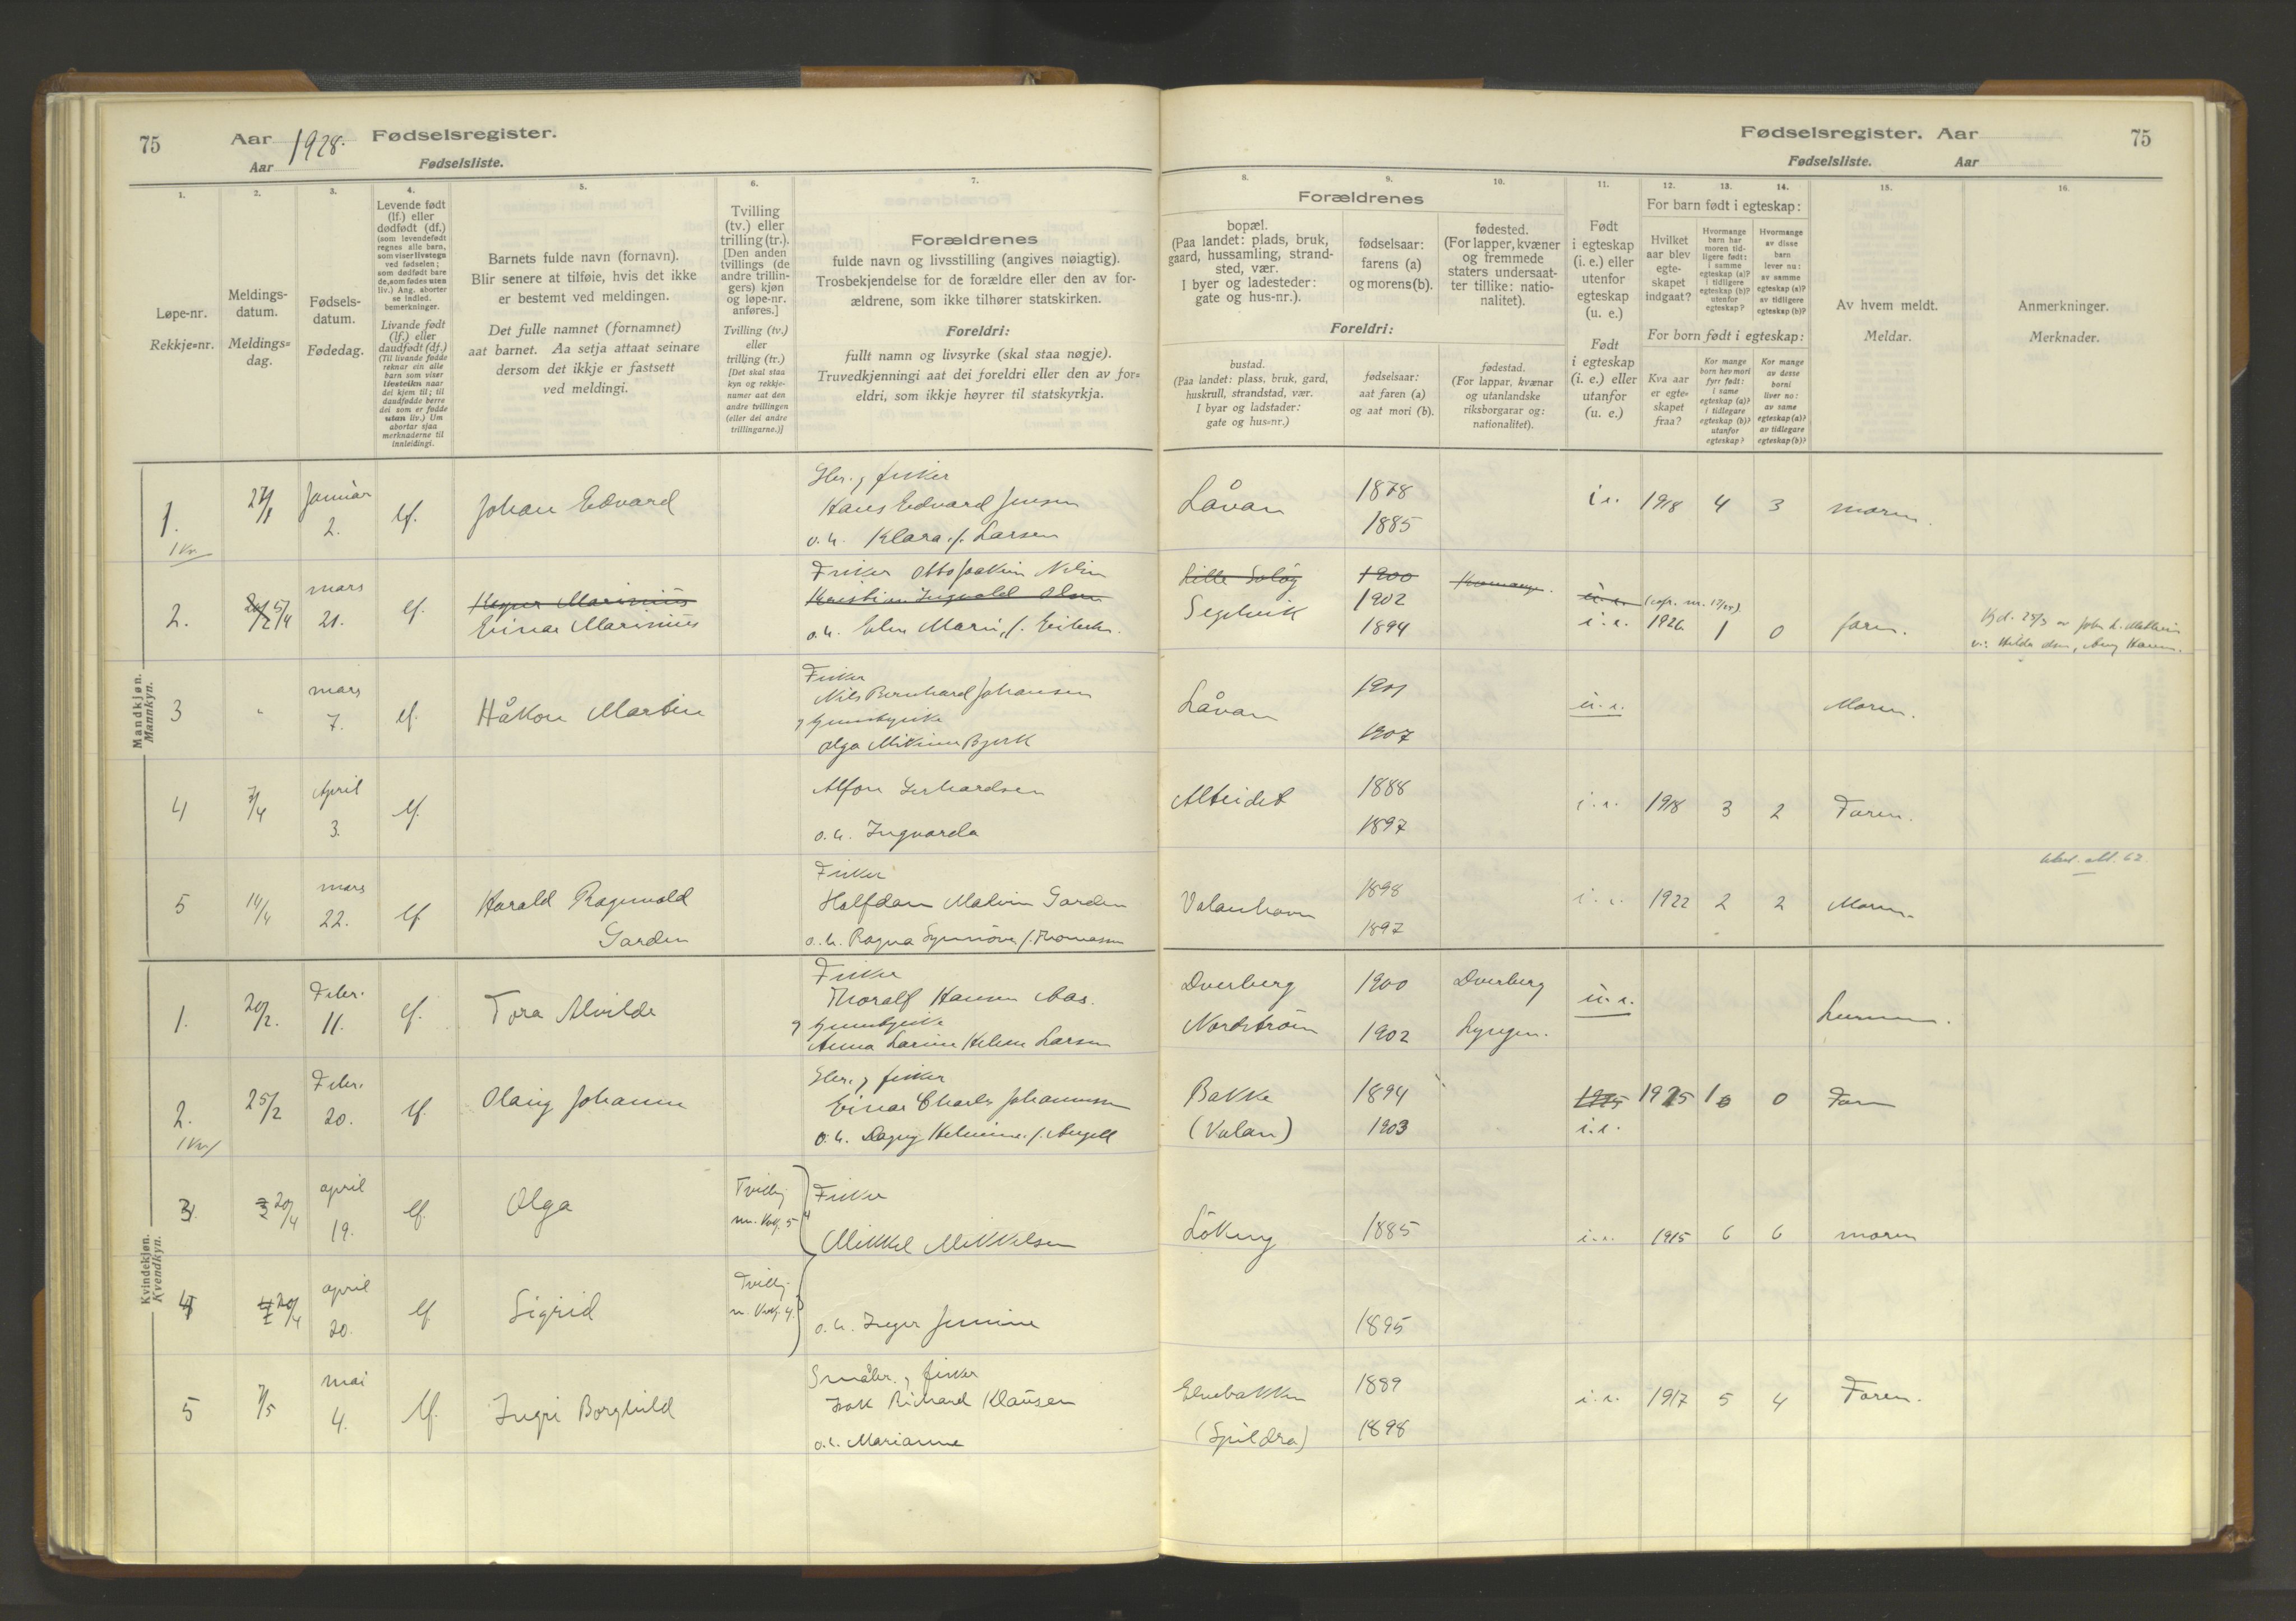 75 Aar 1928. Fødselsregister.
Aar Fødselsliste.
Fødselsregister. Aar 75
Fødselsliste. Aar
1. 2. 3. 4. 5. 6. 7. 8. 9. 10. 11. 12. 13. 14. 15. 16.
Løpe-nr.
Rekkje=nr.
Meldings-
datum.
Meldings=
dag.
Fødsels-
datum.
Fødedag.
Levende født
(lf.) eller
dødfødt (df.)
(som levendefødt
regnes alle barn,
som viser livstegn
ved fødselen;
som dødfødt bare
de, som fødes uten
liv.) Ang. aborter
se indled.
bemerkninger.
Livande født
(lf.) eller
daudfødt (df.)
(Til livande fødde
reknar ein alle
barn som viser
livsteikn naar
dei kjem til; til
daudfødde berre
dei som er fødde
utan liv.) Um
abortar sjaa
merknaderne til
innleidingi.
Barnets fulde navn (fornavn).
Blir senere at tilføie, hvis det ikke
er bestemt ved meldingen.
Det fulle namnet (fornamnet)
aat barnet. Aa setja attaat seinare
dersom det ikkje er fastsett
ved meldingi.
Tvilling
(tv.) eller
trilling (tr.).
[Den anden
tvillings (de
andre trillin-
gers) kjøn
og løpe-nr.
anføres.]
Tvilling (tv.)
eller
trilling (tr.)
[Det skal staa
kyn og rekkje-
numer aat den
andre tvillingen
(eller dei andre
trillingarne.)]
Forældrenes
fulde navn og livsstilling (angives nøiagtig).
Trosbekjendelse for de forældre eller den av for-
ældrene, som ikke tilhører statskirken.
Foreldri:
fullt namn og livsyrke (skal staa nøgje).
Truvedkjenningi aat dei foreldri eller den av for=
eldri, som ikkje høyrer til statskyrkja.
Forældrenes
bopæl.
(Paa landet: plads, bruk,
gaard, hussamling, strand-
sted, vær.
I byer og ladesteder:
gate og hus-nr.).
fødselsaar:
farens (a)
og morens (b).
fødested.
(For lapper, kvæner
og fremmede
staters undersaat-
ter tillike: natio-
nalitet).
Foreldri:
bustad.
(Paa landet: plass, bruk, gard,
huskrull, strandstad, vær.
I byar og ladstader:
gate og hus=nr.)
fødselsaar:
aat faren (a)
og aat mori (b).
fødestad.
(For lappar, kvænar
og utanlandske
riksborgarar og:
nationalitet).
Født
i egteskap
(i. e.) eller
utenfor
egteskap
(u. e.)
Født
i egteskap
(i. e.) eller
utanfor
(u. e.)
For barn født i egteskap:
Hvilket
aar blev
egte-
skapet
indgaat?
Hvormange
barn har
moren tid-
ligere født:
i samme
egteskap (a)?
i tidligere
egteskap (b)?
utenfor
egteskap?
Hvormange
av disse
barn
lever nu:
av samme
egteskap (a)?
av tidligere
egteskap (b)?
For born født i egteskap:
Kva aar
er egte-
skapet
fraa?
Kor mange
born hev mori
fyrr født:
i same
egteskap (a)?
i tidlegare
egteskap (b)?
utanfor
egteskap?
Kor mange
av desse
borni
liver no:
av same
egteskap (a)?
av tidlegare
egteskap (b)?
Av hvem meldt.
Meldar.
Anmerkninger.
Merknader.
Mandkjøn.
Mannkyn.
1. Januar 2. lf. Johan Edvard
Hans Edvard Jensen
o.h. Klara f. Larsen
Låvan 1878 1885 i.e. 1918 4 3 moren.
2. mars 21. lf. Marinius
Einar Marinius
Fisker Otto Joakim
Kristian Ingvald Olsen
Lille 1900
Segelvik 1902 1894 i.e. 1926 1 0 faren.
3 mars 7. lf. Håkon Martin
Fisker
Nils Bernhard Johansen
Olga
Låvan 1901 1907 u.e. Moren.
4 7/4 April 3. lf.
Alfon Gerhardsen
o.h. Ingvarda
Alteidet 1888 1897 i.e. 1918 3 2 Faren.
5 14/4 mars 22. lf Harald Ragnvald
Garden
Fisker
Halfdan Malvin Garden
o.h. Ragna Synnöve f. Thomassen
Valanhavn 1898 1897 i.e. 1922 2 2 Moren.
Kvindekjøn.
Kvendkyn.
1. 20/2. Febr. 11. lf. Tora Alvilde
Fisker
Thoralf Hansen Aas.
Anna Larine Helene Larsen
Dverberg 1900 Dverberg u.e.
Nordström 1902 Lyngen.
2. 25/2 Febr. 20. lf. Olaug Johanne
Einar Charles Johannesen
o.h. Dagny Helmine f. Angell
Bakke 1894 1925 1 0 Far
(Valan) 1903 i.e.
3. 20/4 april 19. lf. Olga
Fisker
Mikkel Mikkelsen
1885 i.e. 1915 6 6 moren
4 20/4 april 20. lf Sigrid
o.h. Inger Jensine
1895
5 7/5 mai 4. lf. Ingri Borghild
Småbr. , fisker
Isak Rickard Klausen
o.h. Marianne
Elvebakken 1889 i.e. 1917 5 4 Faren.
(Spildra) 1898